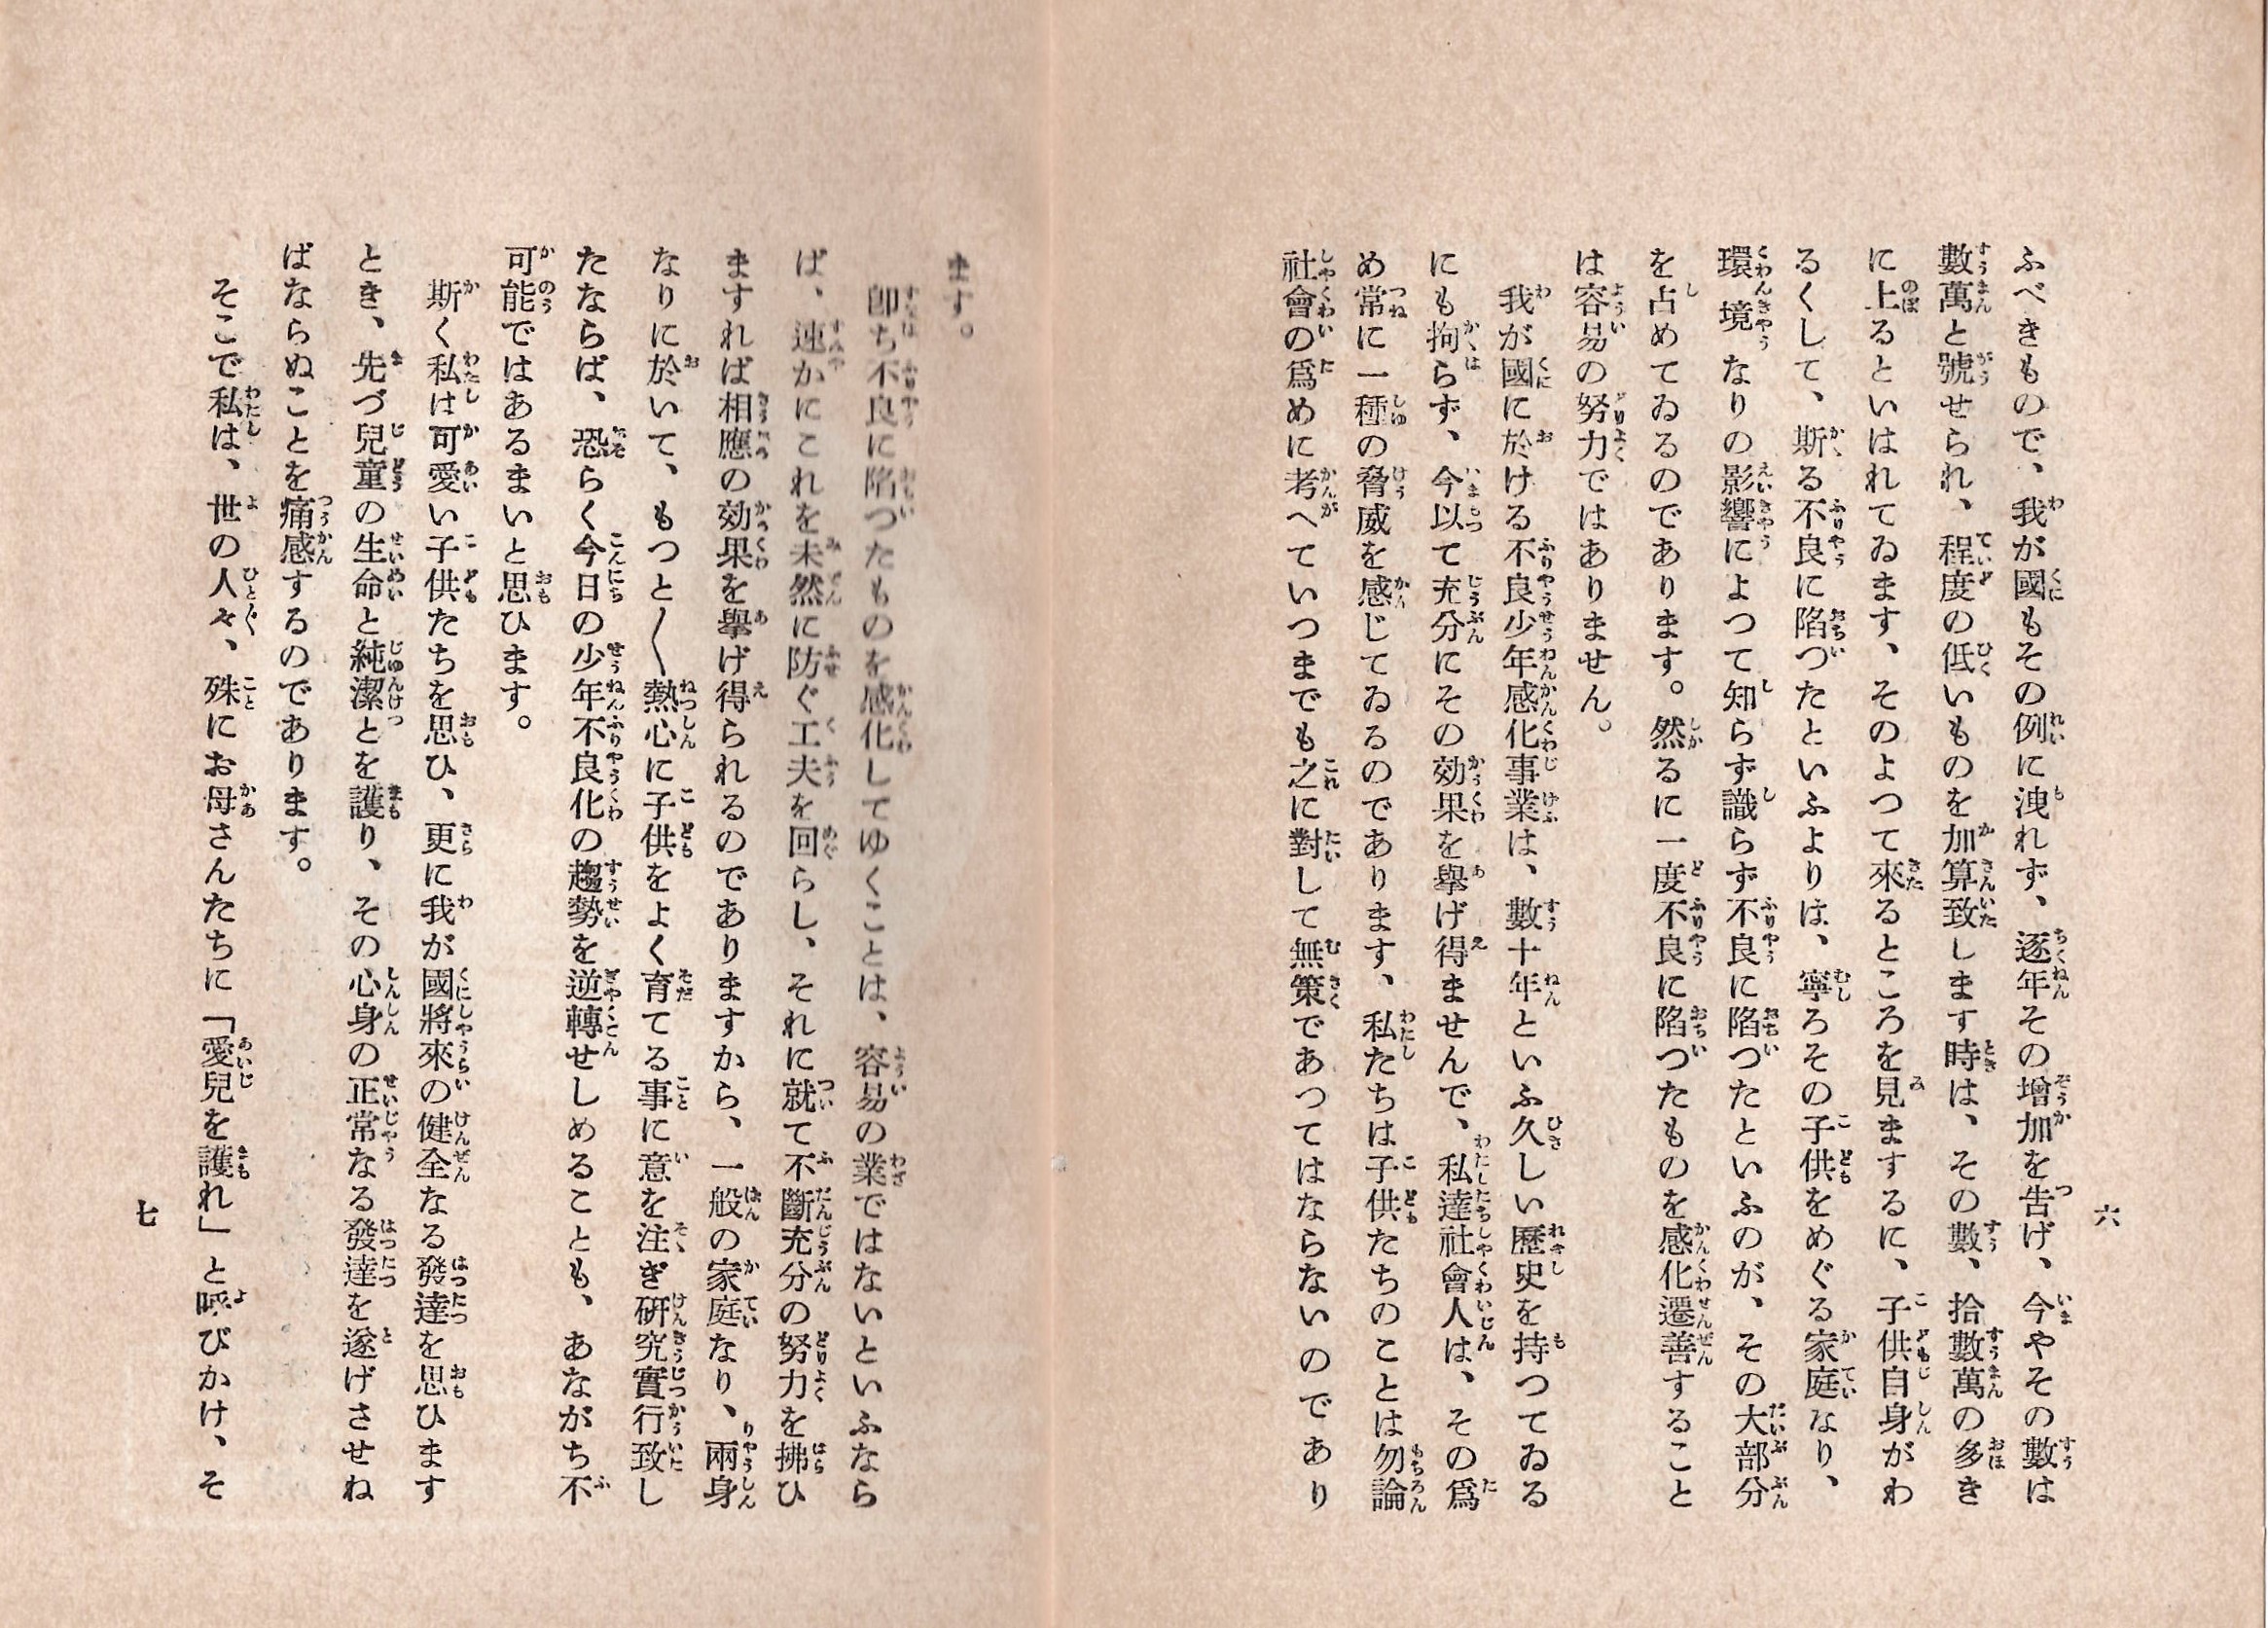 六
ふべきもので、我が國もその例に洩れず、逐年その增加を告げ、今やその數は
數萬と號せられ、程度の低いものを加算致します時は、その數、拾數萬の多き
に上るといはれてゐます、そのよつて來るところを見ますするに、子供自身がわ
るくして、斯る不良に陷つたといふよりは、寧ろその子供をめぐる家庭なり、
環境なりの影響によつて知らず識らず不良に陷つたといふのが、その大部分
を占めてゐるのであります。然るに一度不良に陷つたものを感化遷善すること
は容易の努力ではありません。
我が國に於ける不良少年感化事業は、數十年といふ久しい歷史を持つてゐる
にも拘らず、今以て充分にその効果を擧げ得ませんで、私達社會人は、その爲
め常に一種の脅威を感じてゐるのであります、私たちは子供たちのことは勿論
社會の爲めに考へていつまでも之に對して無策であつてはならないのであり
ます。
卽ち不良に陷つたものを感化してゆくことは、容易の業ではないといふなら
ば、速かにこれを未然に防ぐ工夫を回らし、それに就て不斷充分の努力を拂ひ
ますれば相應の効果を擧げ得られるのでありますから、一般の家庭なり、兩身
なりに於いて、もつと〳〵熱心に子供をよく育てる事に意を注ぎ硏究實行致し
たならば、恐らく今日の少年不良化の趨勢を逆轉せしめることも、あながち不
可能ではあるまいと思ひます。
斯く私は可愛い子供たちを思ひ、更に我が國將來の健全なる發達を思ひます
とき、先づ兒童の生命と純潔とを護り、その心身の正常なる發達を遂げさせね
ばならぬことを痛感するのであります。
そこで私は、世の人々、殊にお母さんたちに「愛兒を護れ」と呼びかけ、そ
七